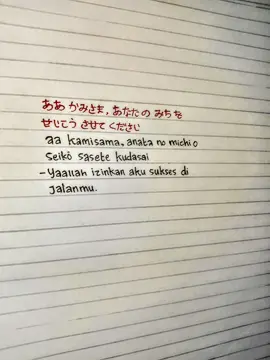 ああ かみさま、あなたの みちを
せじこう させて ください
aa kamisama, anata no michi o
Seikō sasete kudasai
-Yaallah izinkan aku sukses di
jalanmu.